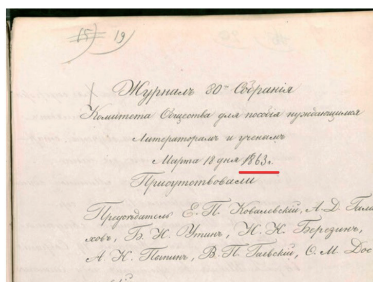 15) 19)
Журналъ 80го Собранія
Комитета Общества для пособія нуждающимся
Литераторамъ и ученымъ
Марта 18 дня 1863 г.
Присутствовали
Предсѣдатель Е. П. Ковалевскій, А. Д. Гала-
ховъ, Б. И. Утинъ, И. Н. Березинъ,
А. Н. Пыпинъ, В. П. Гаевскій, С. М. Дос